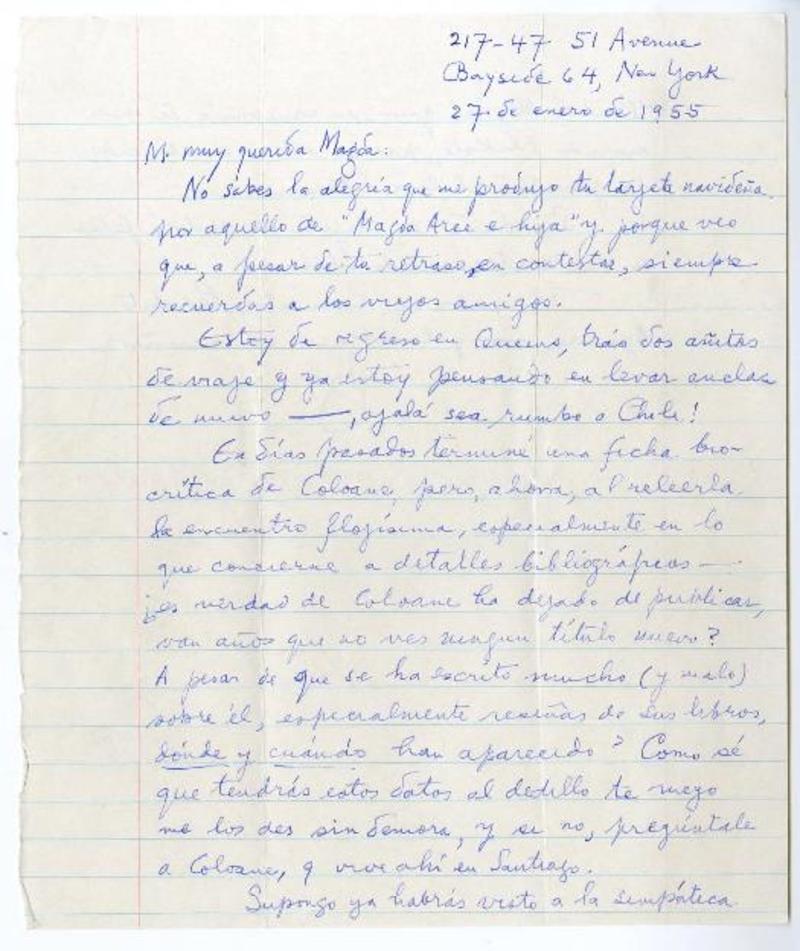 217-47 51 Avenue
Bayside 64, New York
27 de enero de 1955
Mi muy querida Magda:
No sabes la alegría que me produjo tu tarjeta navideña.
por aquello de "Magda Arce e hija" y porque veo
que, a pesar de tu retraso, en contestar, siempre
recuerdas a los viejos amigos.
Estoy de regreso en Queens, trás dos añitos
de viaje y ya estoy pensando en levar anclas
de nuevo —, ojalá sea rumbo a Chile!
En días pasados terminé una ficha bio-
crítica de Coloane, pero, ahora, al releerla
la encuentro flojísima, especialmente en lo
que concierne a detalles bibliográficos —
¿es verdad de Coloane ha dejado de publicar,
van años que no veo ningún título nuevo?
A pesar de que se ha escrito mucho (y malo)
sobre él, especialmente reseñas de sus libros,
dónde y cuándo han aparecido? Como sé
que tendrás estos datos al dedillo te ruego
me los des sin demora, y si no, pregúntale
a Coloane, q vive ahí en Santiago.
Supongo ya habrás visto a la simpática